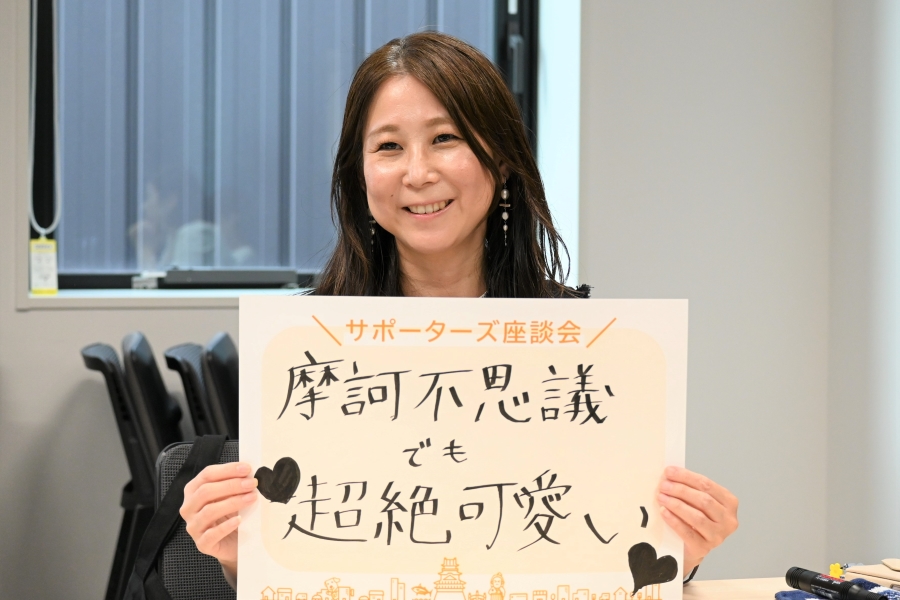 サポーターズ座談会
摩訶不思議
でも
超絶可愛い